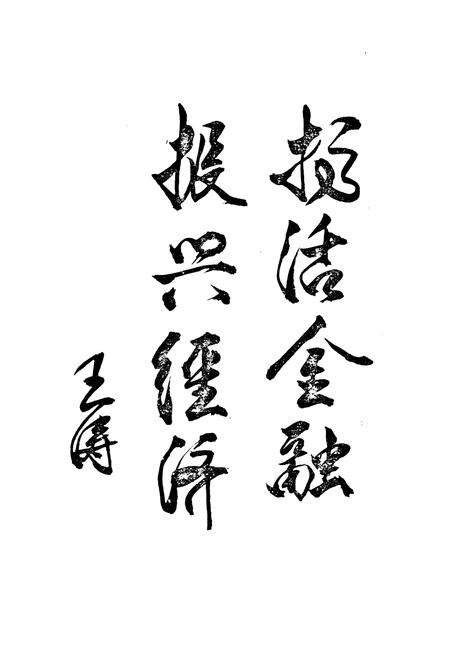 搞活金融
振兴經济
王涛